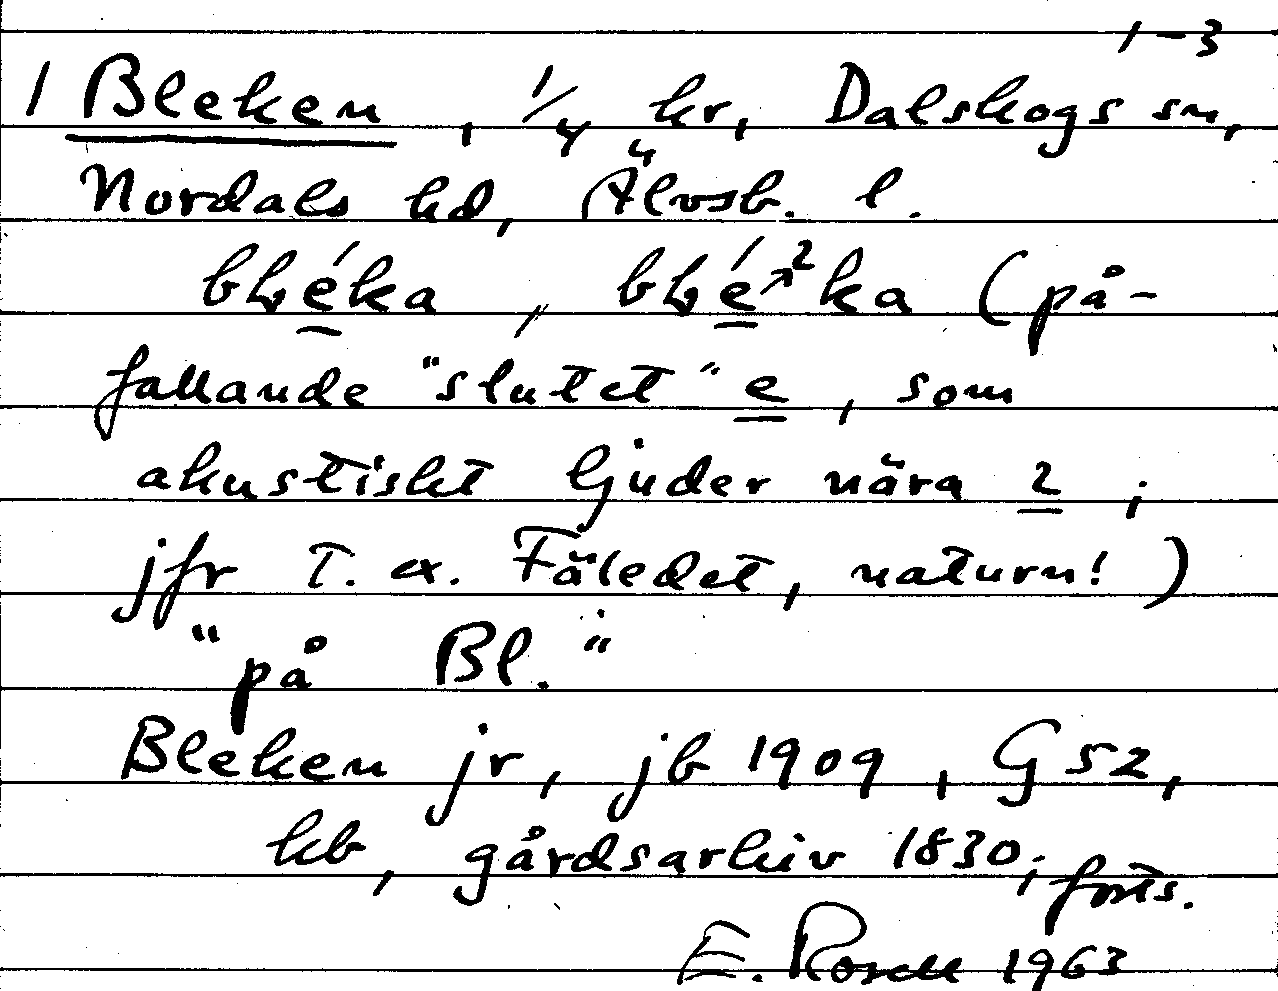 1-3
1 Bleken, 1/4 kr, Dalskogs sn,
Nordals hd, Älvsb. l.
(på-
fallande "slutet" e, som
akustiskt ljuder nära 2;
jfr t. ex. Fäledet, naturn!)
"på Bl."
Bleken jr, jb 1909, G 52,
kb, gårdsarkiv 1830; forts.
E. Rosell 1963